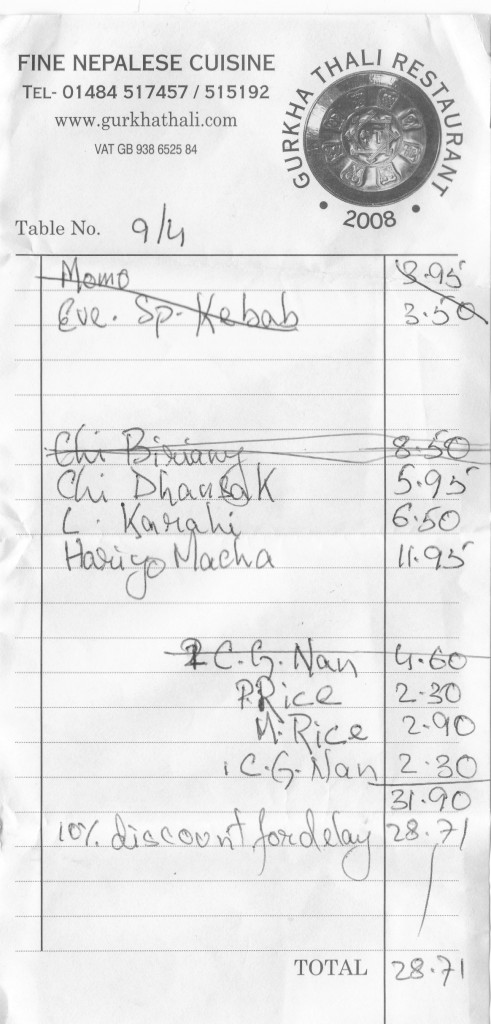 FINE NEPALESE CUISINE
TEL- 01484 517457 / 515192
www.gurkhathali.com
VAT GB 938 6525 84
GURKHA THALI RESTAURANT
• 2008 •
Table No. 9/4
Momo 3.95
Eve. Sp. Kebab 3.50
Chi Biriany 8.50
Chi Dhansak 5.95
L. Karahi 6.50
Hariyo Macha 11.95
2 C.G. Nan 4.60
P. Rice 2.30
M. Rice 2.90
1 C.G. Nan 2.30
31.90
10% discount for delay 28.71
TOTAL 28.71